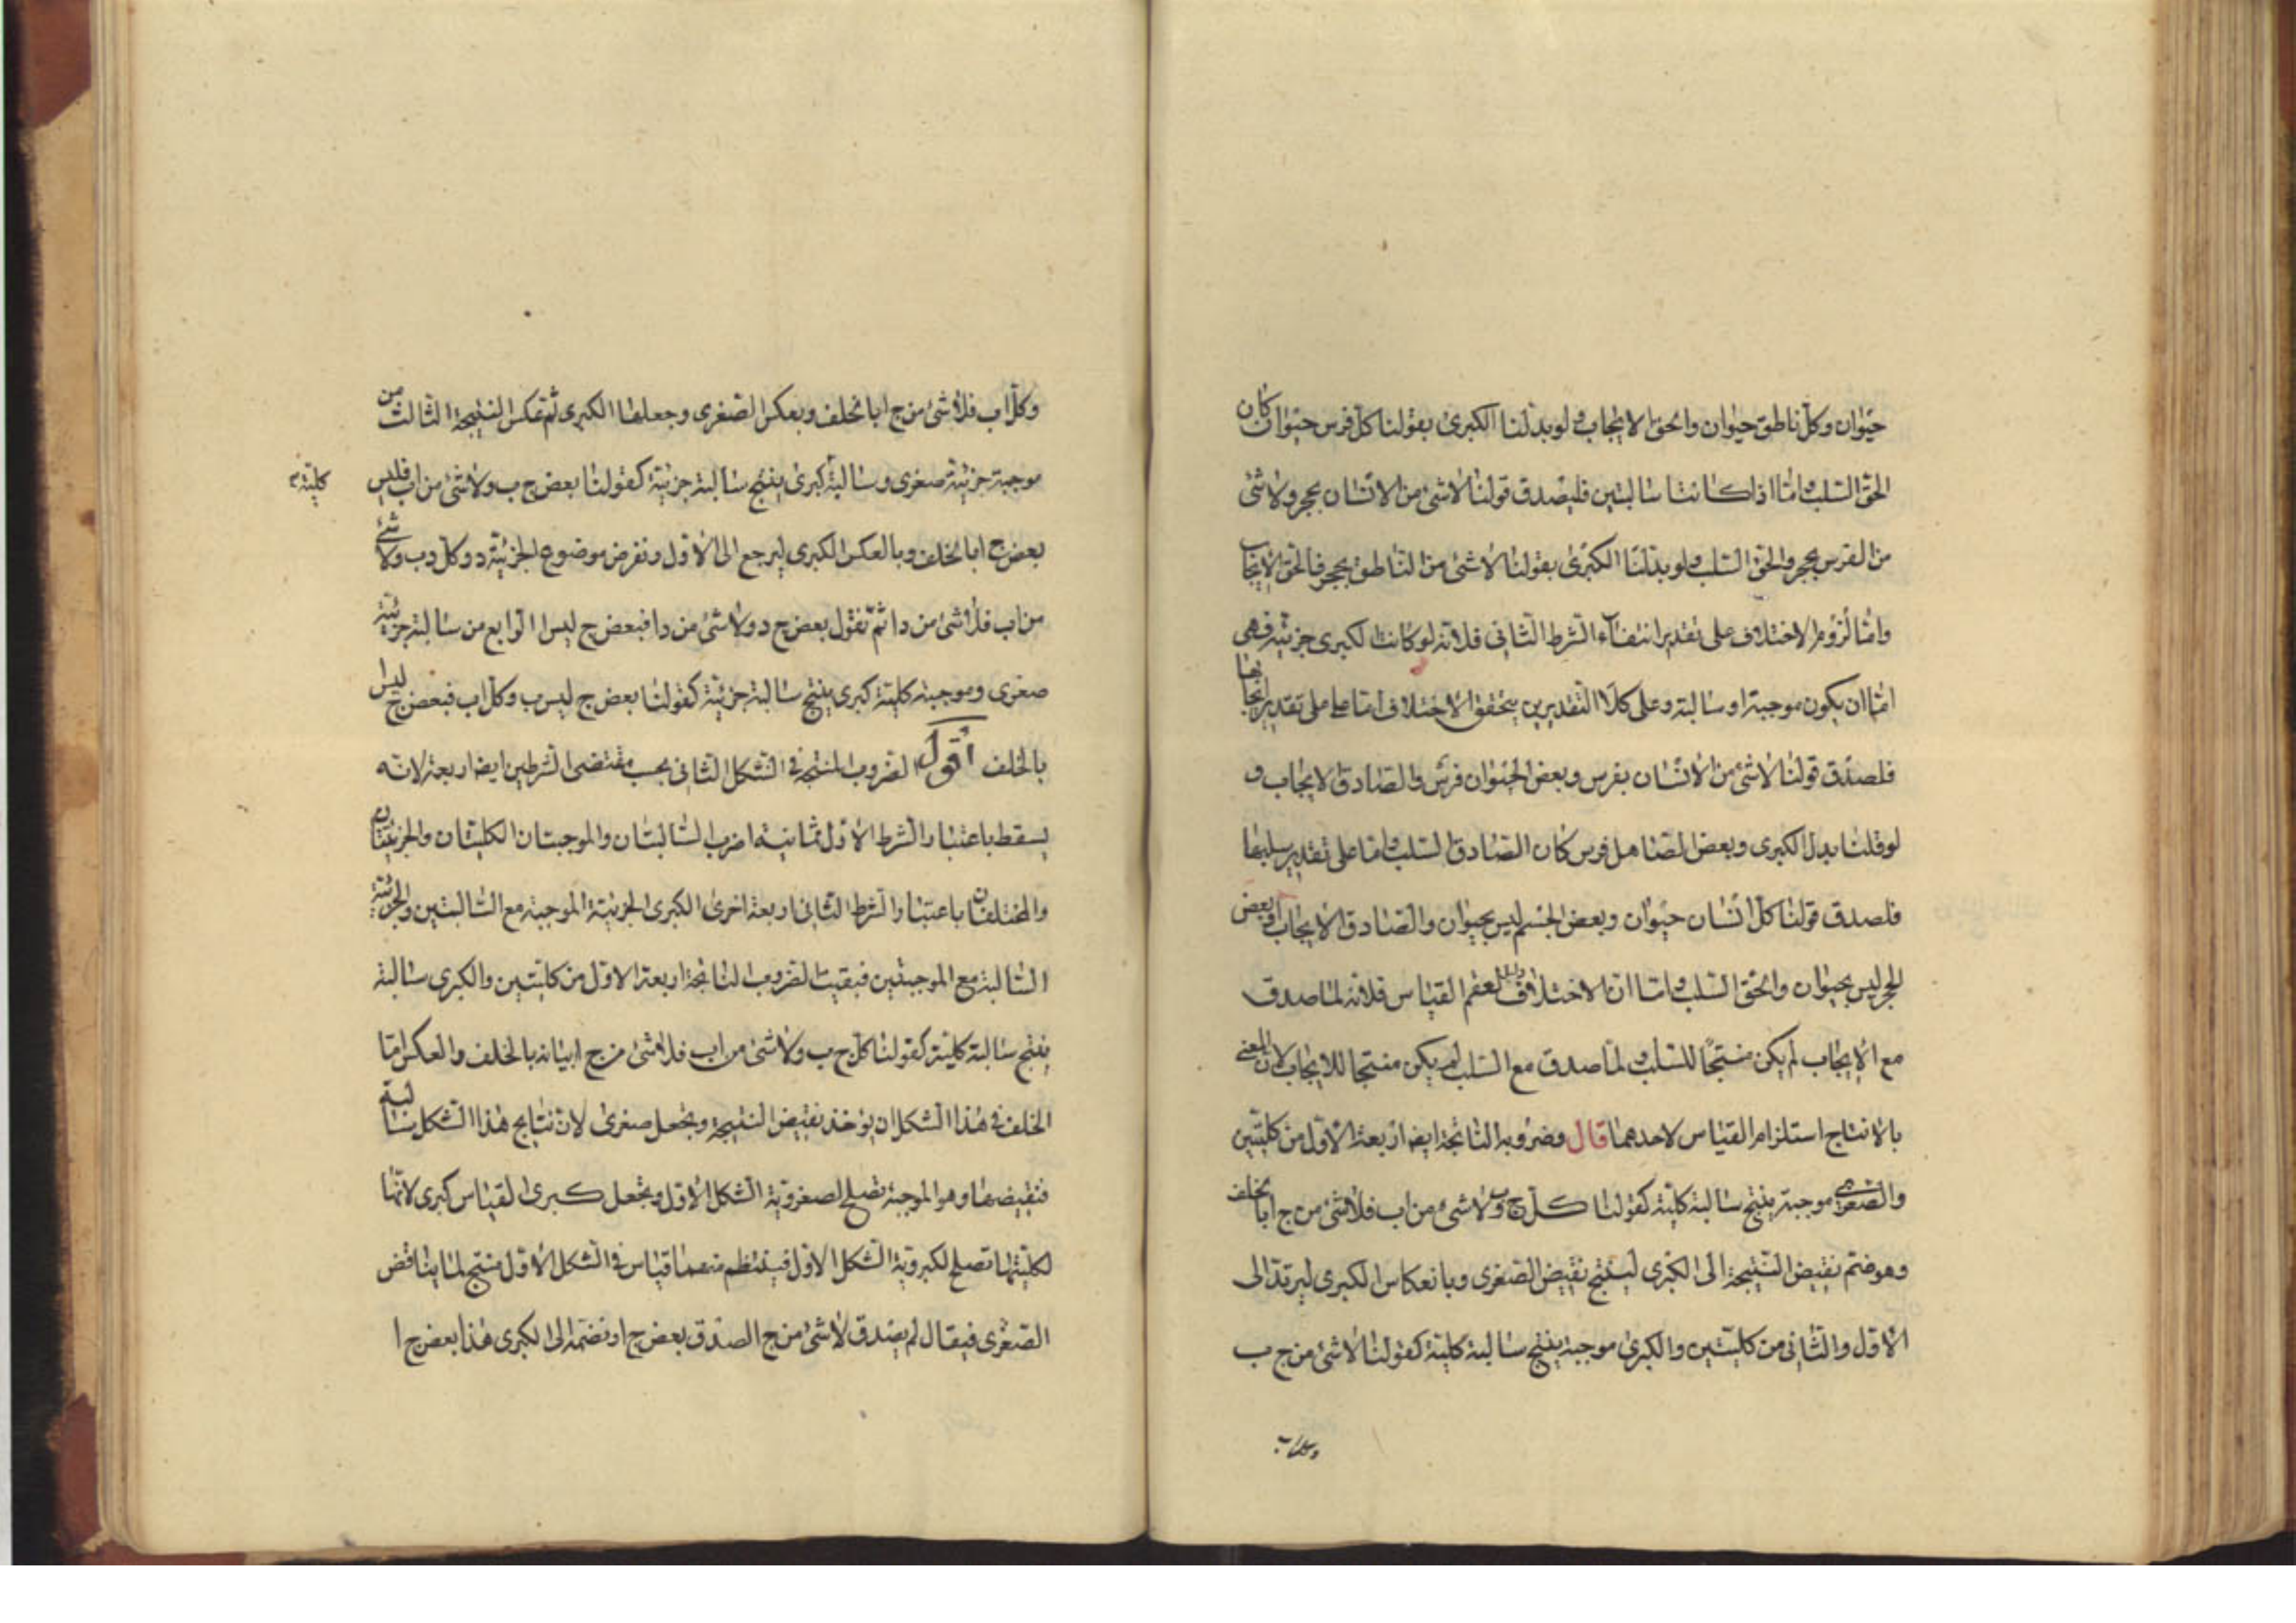 حيوان وكل ناطق حيوان والحق الايجاب ولو بدلنا الكبرى بقولنا كل فرس حيوان كان
الحق السلب واما اذا كانتا سالبتين فليصدق قولنا لا شئ من الانسان بحجر ولا شئ
من الفرس بحجر والحق السلب ولو بدلنا الكبرى بقولنا لا شئ من الناطق بحجر فالحق الايجاب
واما لزوم الاختلاف على تقدير انتفاء الشرط الثانى فلانه لو كانت الكبرى جزئية فهى
اما ان يكون موجبة او سالبة وعلى كلا التقديرين يتحقق الاختلاف اما على تقدير ايجابها
فلصدق قولنا لا شئ من الانسان بفرس وبعض الحيوان فرس والصادق الايجاب و
لو قلنا بدل الكبرى وبعض الصاهل فرس كان الصادق السلب واما على تقدير سلبها
فلصدق قولنا كل انسان حيوان وبعض الجسم ليس بحيوان والصادق الايجاب او بعض
الحجر ليس بحيوان والحق السلب واما ان الاختلاف دليل لعقم القياس فلانه لما صدق
مع الايجاب لم يكن منتجا للسلب ولما صدق مع السلب لم يكن منتجا للايجاب لان المعنى
بالانتاج استلزام القياس لاحدهما قال وضروبه الناتجة ايضا اربعة الاول من كليتين
والصغرى موجبة ينتج سالبة كلية كقولنا كل ج ب ولا شئ من اب فلا شئ من ج ا بالخلف
وهو ضم نقيض النتيجة الى الكبرى لينتج نقيض الصغرى وبانعكاس الكبرى ليرتد الى
الاول والثانى من كليتين والكبرى موجبة ينتج سالبة كلية كقولنا لا شئ من ج ب
وكل اب
وكل اب فلا شئ من ج ا بالخلف وبعكس الصغرى وجعلها الكبرى ثم عكس النتيجة الثالث من
موجبة جزئية صغرى وسالبة كبرى ينتج سالبة جزئية كقولنا بعض ج ب ولا شئ من اب فليس
كلية
بعض ج ا بالخلف وبالعكس الكبرى ليرجع الى الاول ونفرض موضوع الجزئية د وكل دب ولا شئ
من اب فلا شئ من دا ثم نقول بعض ج د ولا شئ من دا فبعض ج ليس ا الرابع من سالبة جزئية
صغرى وموجبة كلية كبرى ينتج سالبة جزئية كقولنا بعض ج ليس ب وكل اب فبعض ج ليس ا
بالخلف اقول الضروب المنتجة فى الشكل الثانى بحسب مقتضى الشرطين ايضا اربعة لانه
يسقط باعتبار الشرط الاول ثمانية اضرب السالبتان والموجبتان الكليتان والجزئيتان
والمختلفتان باعتبار الشرط الثانى اربعة اخرى الكبرى الجزئية الموجبة مع السالبتين والجزئية
السالبة مع الموجبتين فبقيت الضروب الناتجة اربعة الاول من كليتين والكبرى سالبة
ينتج سالبة كلية كقولنا كل ج ب ولا شئ من اب فلا شئ من ج ا بيانه بالخلف والعكس اما
الخلف فى هذا الشكل ان يؤخذ نقيض النتيجة ويجعل صغرى لان نتايج هذا الشكل سالبة
فنقيضها وهو الموجبة تصلح لصغروية الشكل الاول ويجعل كبرى القياس كبرى لانها
لكليتها تصلح لكبروية الشكل الاول فينتظم منهما قياس فى الشكل الاول منتج لما يناقض
الصغرى فيقال لم يصدق لا شئ من ج ا لصدق بعض ج ا ونضمه الى الكبرى هذا بعض ج ا